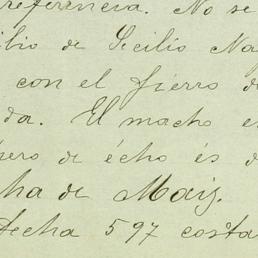 referencia. No se
ilio de Cecilio Na
con el fierro de
da. El macho e
pero de écho és d
cha de Maiz.
Fecha 597 costa